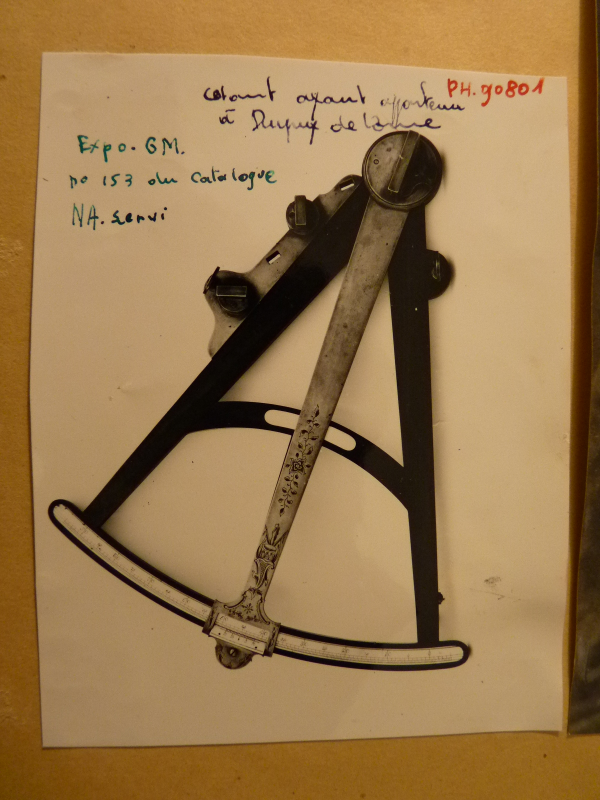 octant ayant appartenu
à Dupuy de Lôme
PH.90801
Expo. GM.
no 153 du Catalogue
NA. servi